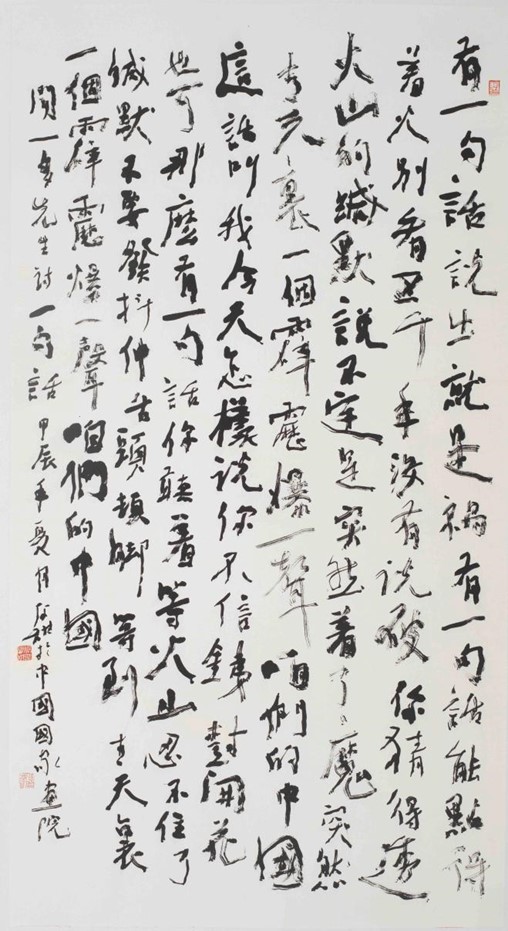 有一句話説出就是禍有一句話能點得
着火别看五千年沒有说破你猜得透
火山的緘默説不定是突然着了魔突然
青天裏一個霹靂爆一聲咱們的中國
這話叫我今天怎樣说你不信鐵樹開花
也可那麽有一句話你聽着等火山忍不住了
緘默不要發抖伸舌頭頓脚等到青天裏
一個霹靂爆一聲咱們的中國
聞一多先生詩一句話甲辰年夏於中國國家畫院